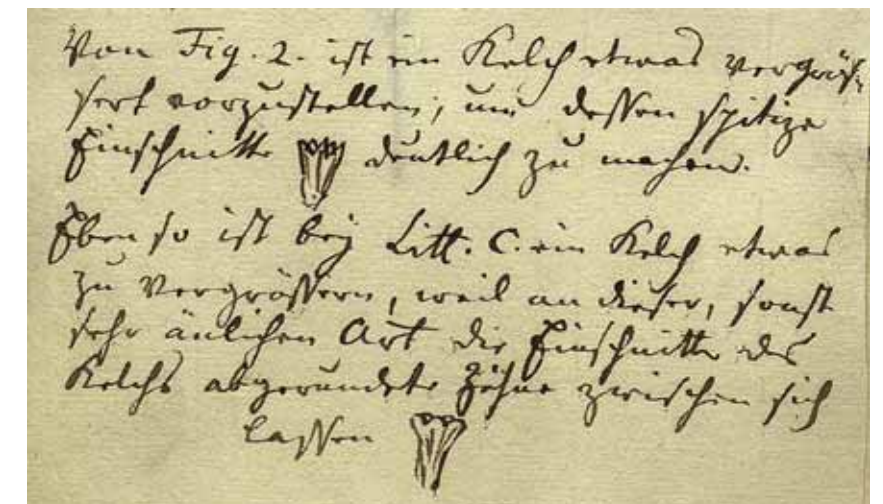 Von Fig. 2. ist ein Kelch etwas vergrös-
sert vorzustellen, um dessen spitige
Einschnitte deutlich zu machen.
Eben so ist bey Litt. C. ein Kelch etwas
zu vergrössern, weil an dieser, sonst
sehr änlichen Art die Einschnitte des
Kelchs abgerundete Zähne zwischen sich
lassen